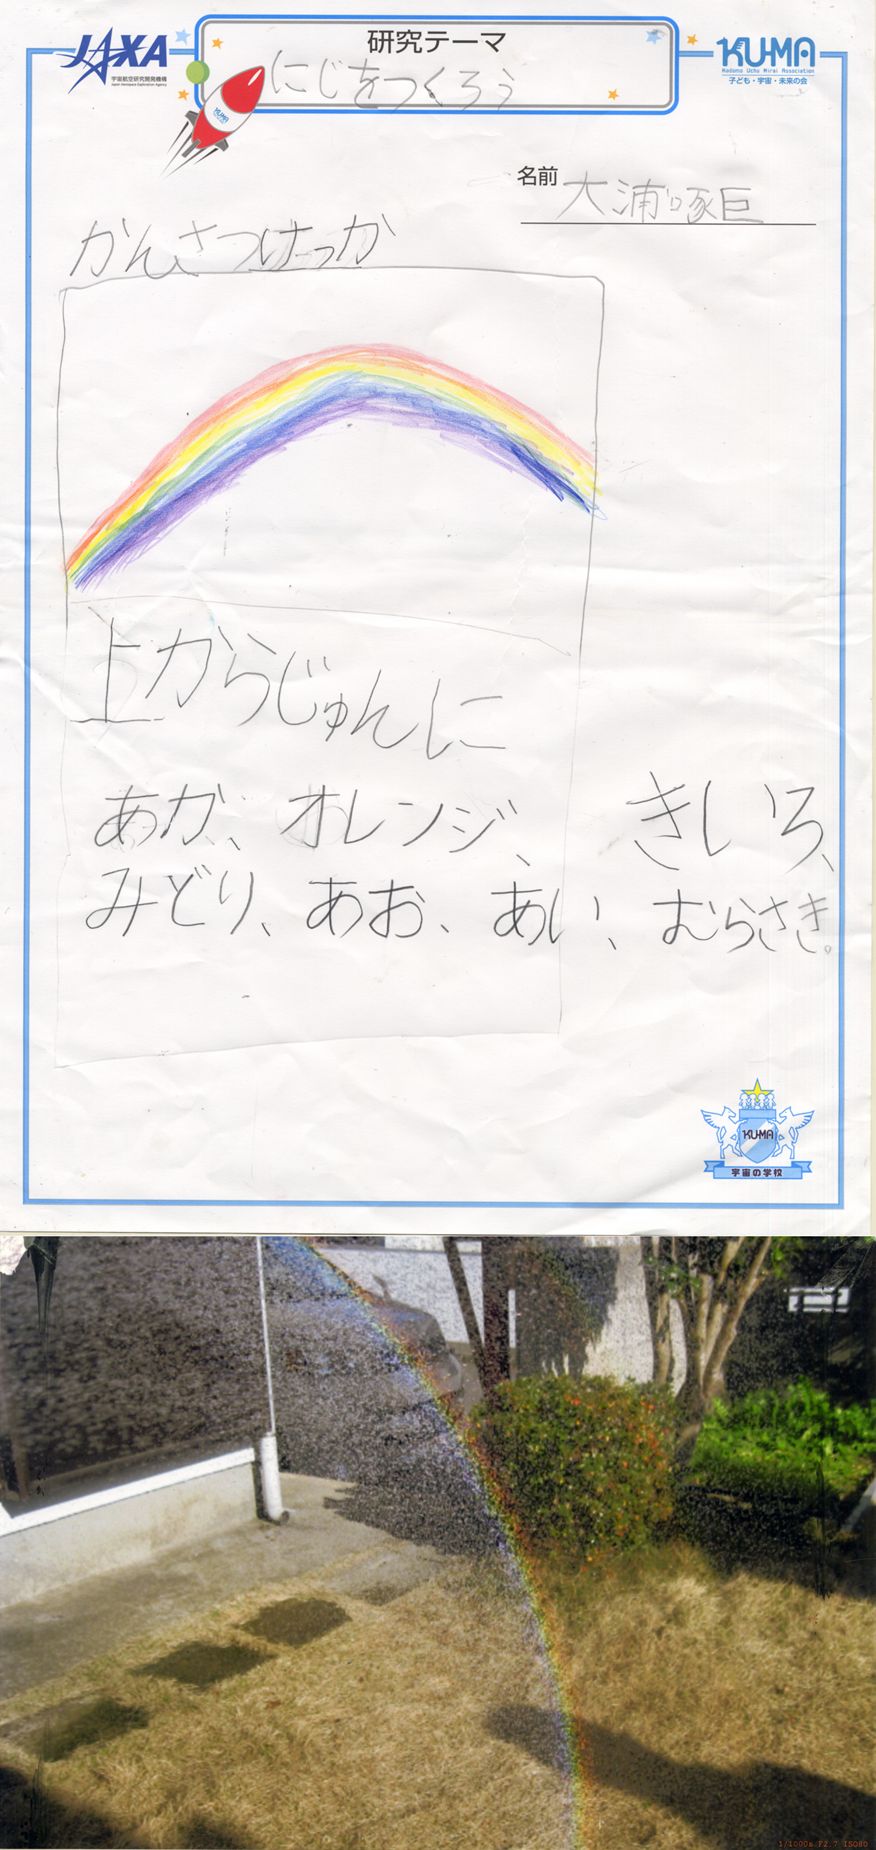 JAXA
宇宙航空研究開発機構
Japan Aerospace Exploration Agency
研究テーマ
にじをつくろう
KU-MA
Kodomo Uchu Mirai Association
子ども・宇宙・未来の会
KU-MA
名前 大浦啄巨
かんさつけっか
上からじゅんに
あか、オレンジ、きいろ、
みどり、あお、あい、むらさき。
KU-MA
宇宙の学校
1/1000s F2.7 ISO80